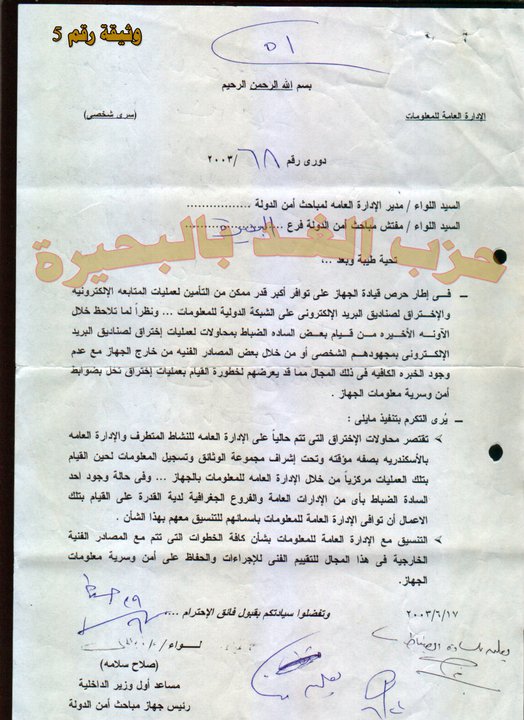 وثيقة رقم 5
٥١
بسم الله الرحمن الرحيم
الإدارة العامة للمعلومات
(سرى شخصى)
دورى رقم ٦٨/٢٠٠٣
السيد اللواء / مدير الإدارة العامه لمباحث أمن الدولة .................
السيد اللواء / مفتش مباحث أمن الدولة فرع
حزب الغد بالبحيرة
تحية طيبة وبعد ...،
ــ فـى إطار حرص قيادة الجهاز على توافر أكبر قدر ممكن من التأمين لعمليات المتابعه الإلكترونيه
والإختراق لصناديق البريد الإلكترونى على الشبكة الدولية للمعلومات ... ونظراً لما تلاحظ خلال
الآونه الأخيره من قيام بعض الساده الضباط بمحاولات لعمليات إختراق لصناديق البريد
الإلكترونى بمجهودهم الشخصى أو من خلال بعض المصادر الفنيه من خارج الجهاز مع عدم
وجود الخبره الكافيه فى ذلك المجال مما قد يعرضهم لخطورة القيام بعمليات إختراق تخل بضوابط
أمن وسرية معلومات الجهاز .
ــ يُرى التكرم بتنفيذ مايلى :
➢ تقتصر محاولات الإختراق التى تتم حالياً على الإدارة العامه للنشاط المتطرف والإدارة العامه
بالأسكندريه بصفه مؤقته وتحت إشراف مجموعة الوثائق وتسجيل المعلومات لحين القيام
بتلك العمليات مركزياً من خلال الإدارة العامه للمعلومات بالجهاز ... وفى حالة وجود احد
السادة الضباط بأى من الإدارات العامة والفروع الجغرافية لدية القدرة على القيام بتلك
الاعمال أن توافى الإدارة العامة للمعلومات باسمائهم للتنسيق معهم بهذا الشأن .
➢ التنسيق مع الإدارة العامة للمعلومات بشأن كافة الخطوات التى تتم مع المصادر الفنية
الخارجية فى هذا المجال للتقييم الفنى للإجراءات والحفاظ على أمن وسرية معلومات
الجهاز.
وتفضلوا سيادتكم بقبول فائق الإحترام ....
٢٠٠٣/٦/١٧
لــواء /
(صلاح سلامه)
مساعد أول وزير الداخلية
رئيس جهاز مباحث أمن الدولة